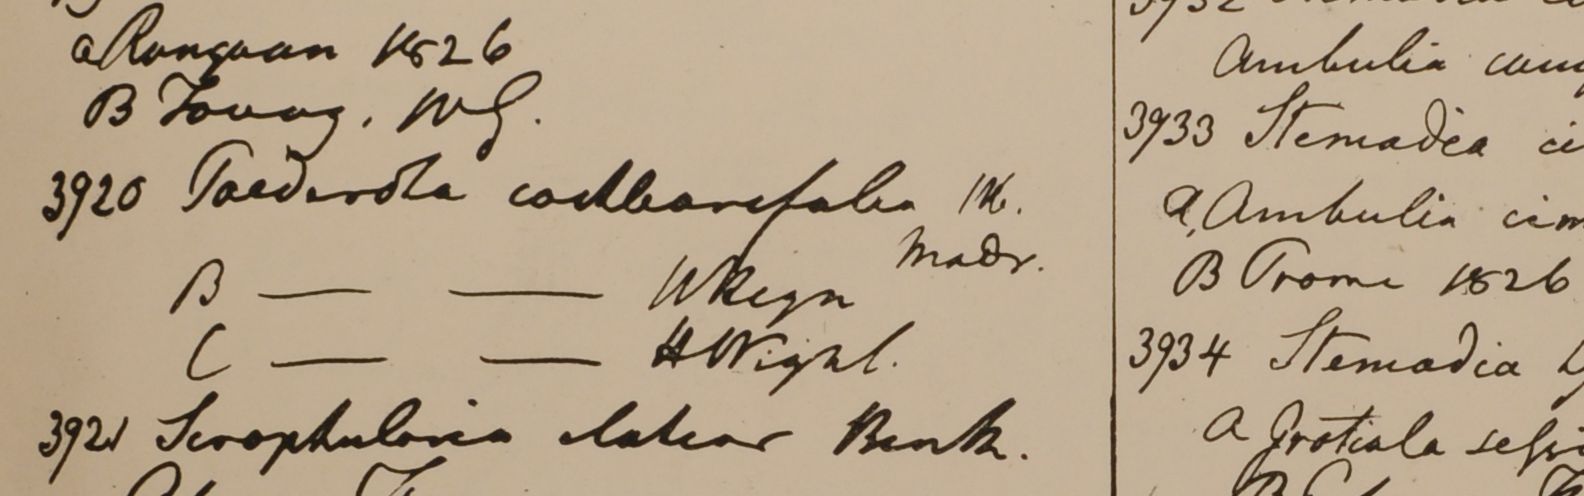 a Rangoan 1826
B Tavoy, W G.
3920 Paederota cochlearifolia
Madr.
B — — Wight
C — — H Wight.
3921 Scrophularia elatior Benth.
Ambulia
3933 Stemadia ci
a, Ambulia cim
B Prome 1826
3934 Stemadia
a Gratiola